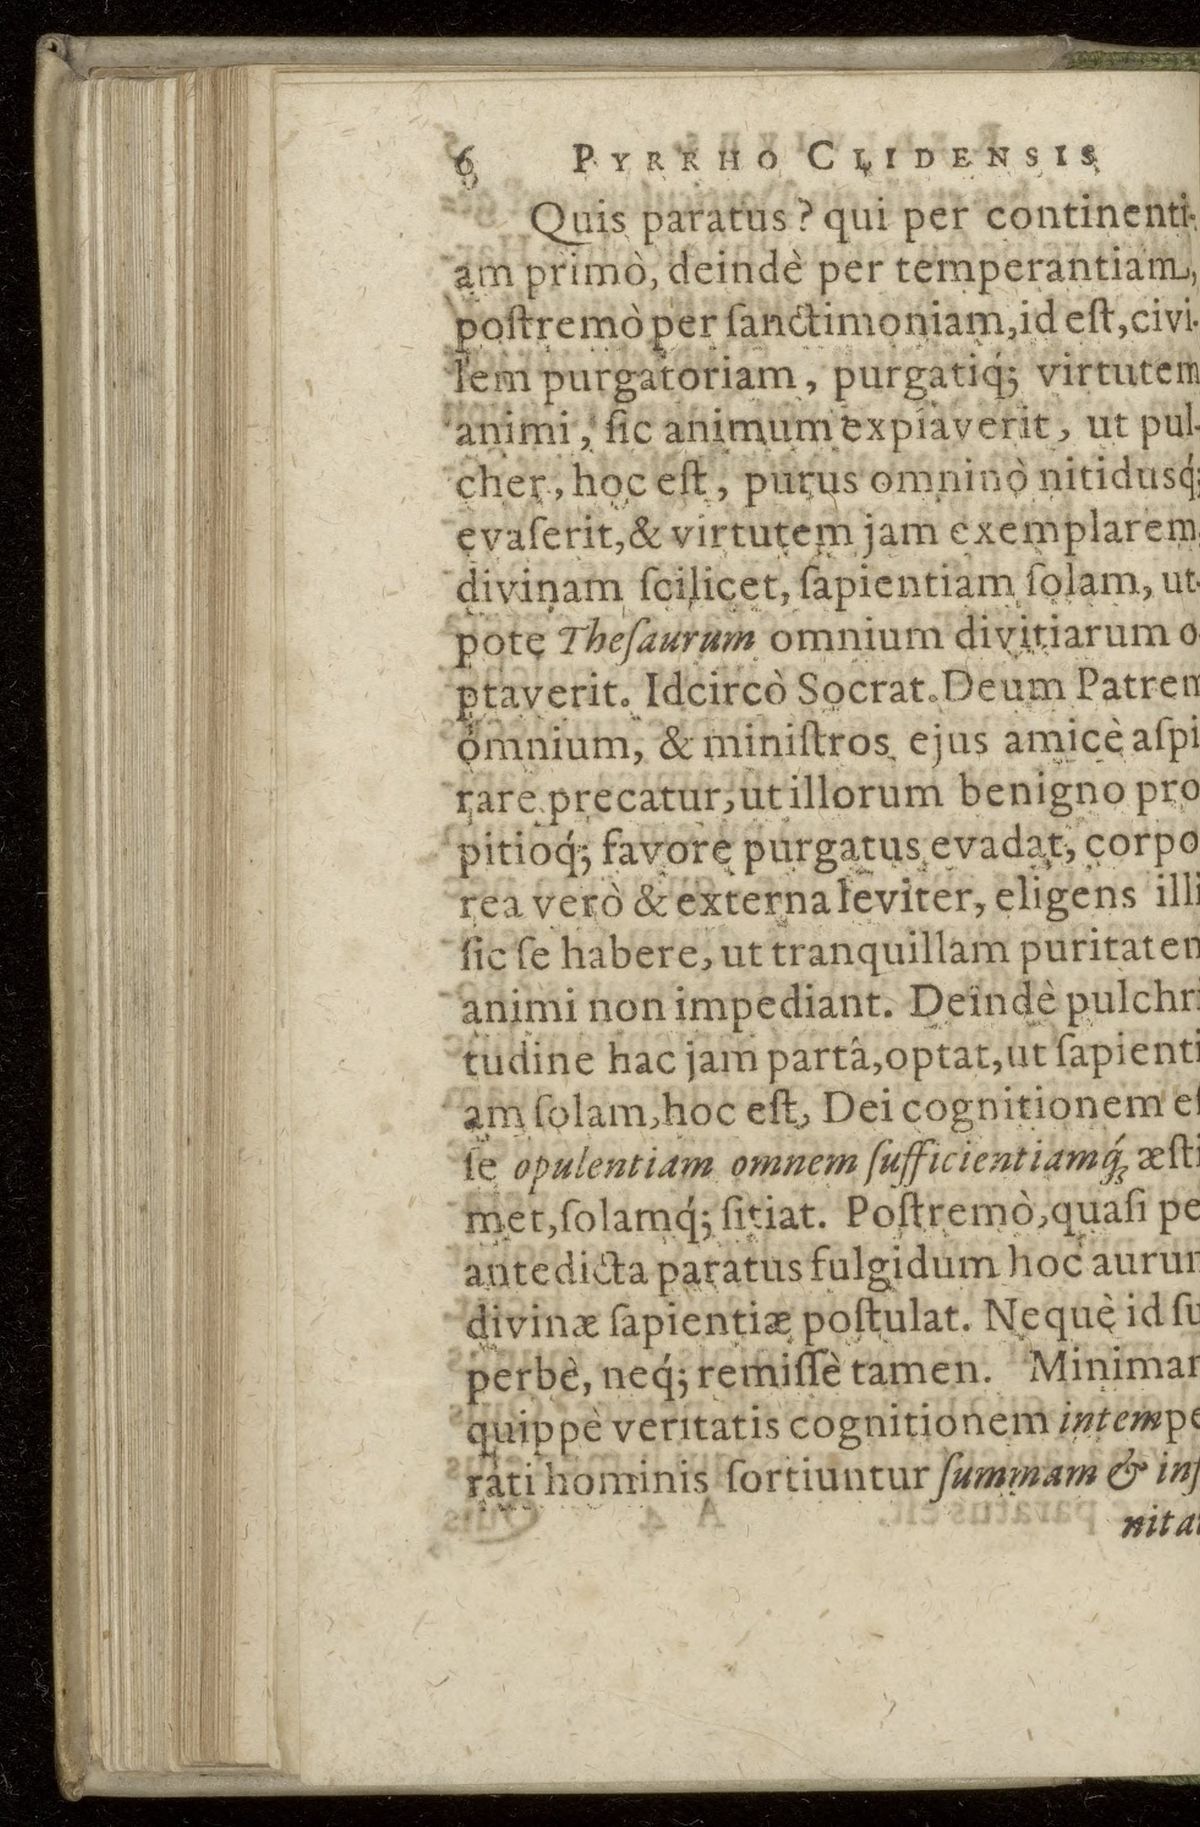 6 PYRRHO CLIDENSIS
Quis paratus? qui per continenti-
am primò, deindè per temperantiam,
poſtremò per ſanctimoniam, id eſt, civi-
lem purgatoriam, purgatiq́; virtutem
animi, ſic animum expiaverit, ut pul-
cher, hoc eſt, purus omninò nitidusq́;
evaſerit, & virtutem jam exemplarem
divinam ſcilicet, ſapientiam ſolam, ut-
pote Theſaurum omnium divitiarum o-
ptaverit. Idcircò Socrat. Deum Patrem
omnium, & miniſtros ejus amicè aſpi
rare precatur, ut illorum benigno pro
pitioq́; favore purgatus evadat, corpo
rea verò & externa leviter, eligens illi
ſic ſe habere, ut tranquillam puritatem
animi non impediant. Deindè pulchri
tudine hac jam partâ, optat, ut ſapienti
am ſolam, hoc eſt, Dei cognitionem eſ
ſe opulentiam omnem ſufficientiamq́; æſti
met, ſolamq́; ſitiat. Poſtremò, quaſi pe
antedicta paratus fulgidum hoc aurum
divinæ ſapientiæ poſtulat. Nequè id ſu
perbè, neq́; remiſſè tamen. Minimam
quippè veritatis cognitionem intempe
rati hominis ſortiuntur ſummam & inf
nitat